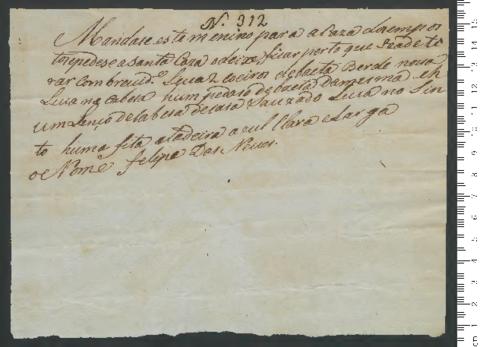 N. 312
Mandase este menino para a Caza do emposto
torpedese a Santa Caza o deixe ficar porto que se ade te
rar com brevid.e Leva 2 coeiros de baeta Verde nova
Leva na Cabesa hum pedaso de baeta Da mesma e h
um Lenço de Cabesa de casa Leva no Sin
to huma fita atadeira azul Clara e Larga
o Nome Felipa Das Neves.